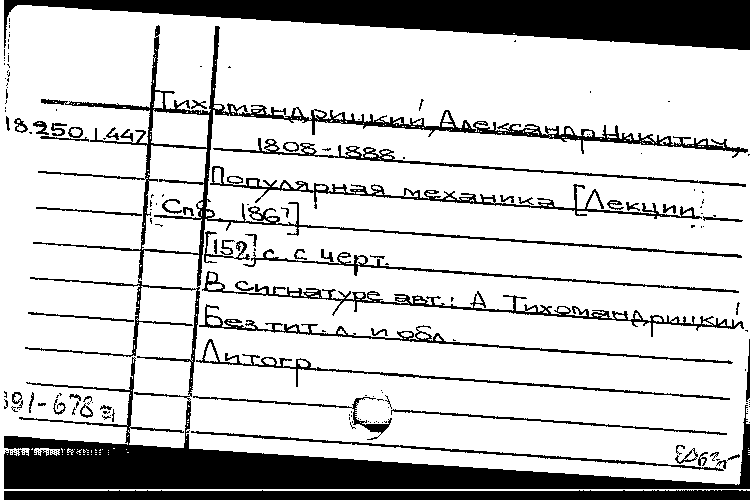 Тихомандрицкий, Александр Никитич,
18.250.1.447
1808-1888.
Популярная механика [Лекции].
[Спб., 1867]
[152] с. с черт.
В сигнатуре авт.: А. Тихомандрицкий.
Без тит. л. и обл.
Литогр.
91-678